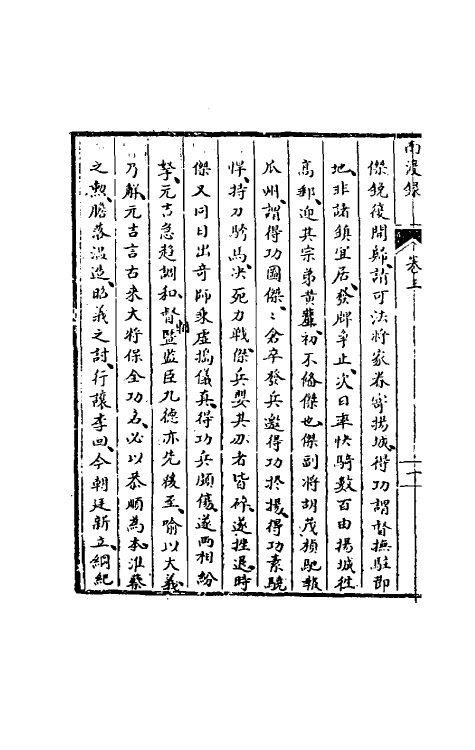 南渡錄
卷三
傑銳復開鄰請可法將家眷寄揚城得功謂督撫駐節
地非諸鎮宜居發牌爭止次日率快騎數百由揚城往
高郵迎其宗弟黃蜚初不備傑也傑副將胡茂楨馳報
瓜州謂得功圖傑傑倉卒發兵邀得功於揚得功素驍
悍持刀騎馬决死力戰傑兵嬰其刃者皆碎遂挫退時
傑又同日出奇師乘虛搗儀真得功兵頗傷遂兩相紛
拏元吉急趨調和督輔暨監臣九德亦先後至喻以大義
乃解元吉言古來大將保全功名必以恭順為本淮蔡
之勲膽落造昭義之討行讓李回今朝廷新立綱紀